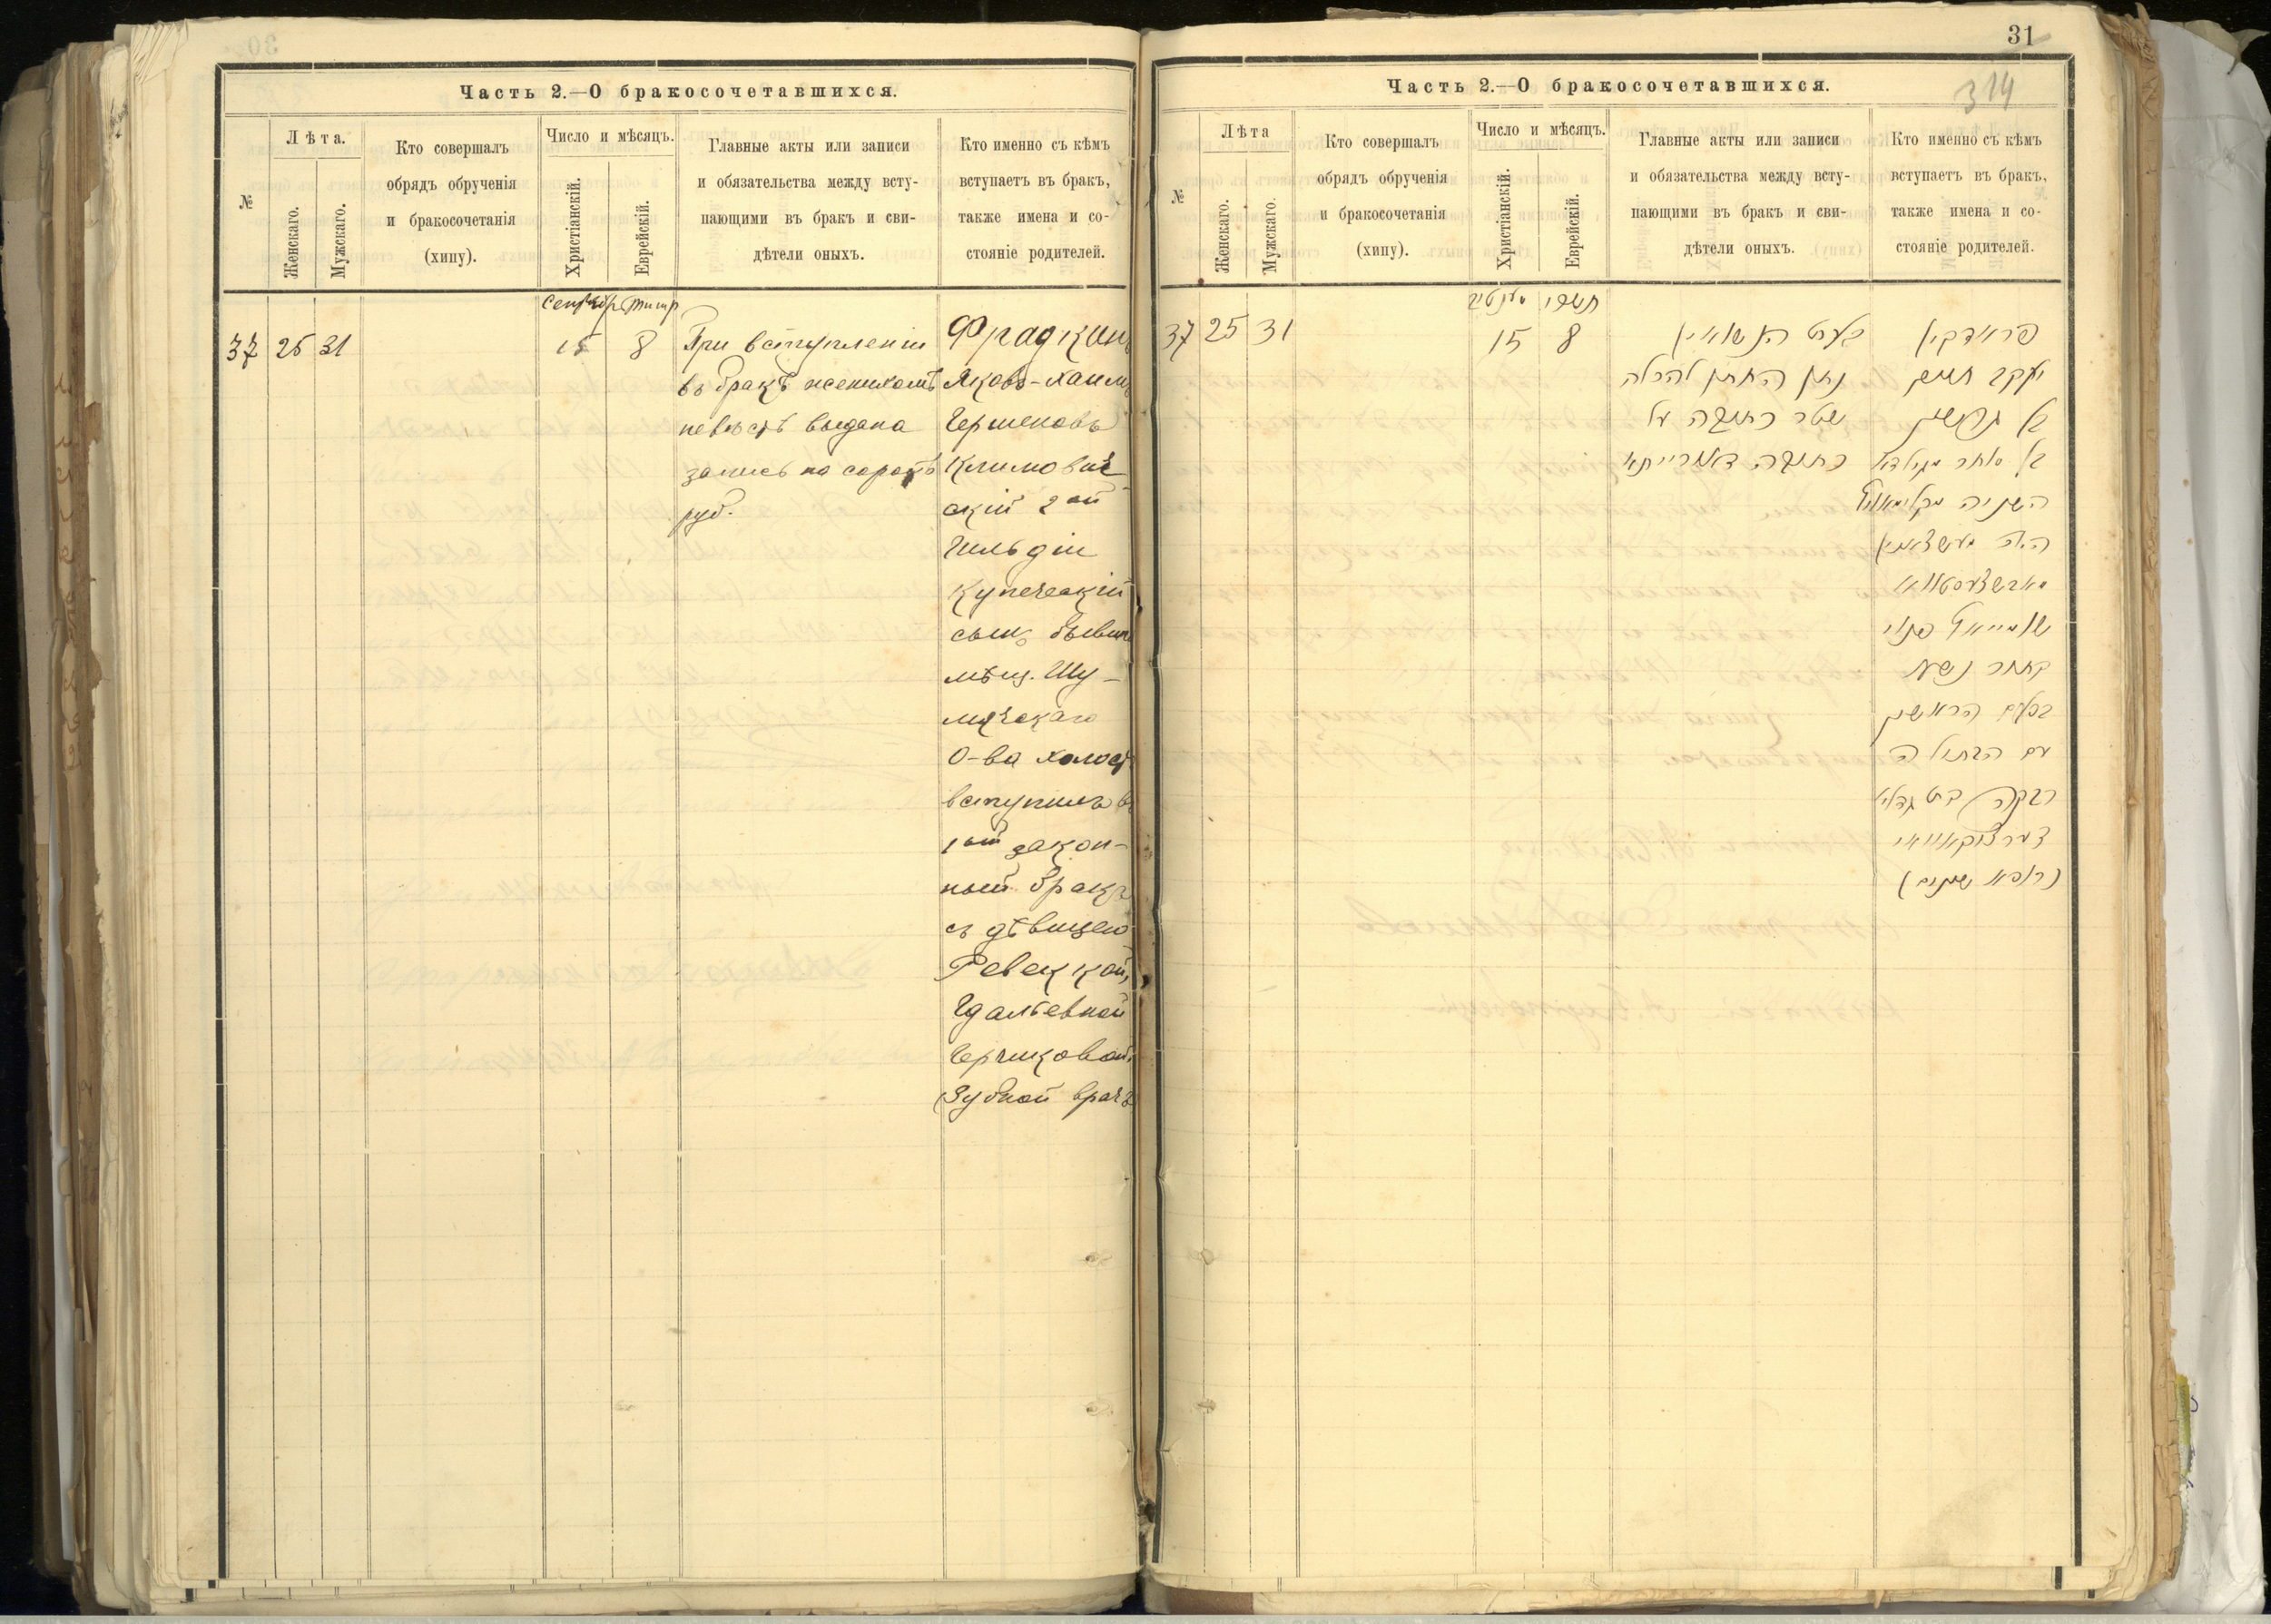 Часть 2.—О бракосочетавшихся.
№
Лѣта.
Женскаго.
Мужскаго.
Кто совершалъ
обрядъ обрученія
и бракосочетанія
(хипу).
Число и мѣсяцъ.
Христіанскій.
Еврейскій.
Главные акты или записи
и обязательства между всту-
пающими въ бракъ и сви-
дѣтели оныхъ.
Кто именно съ кѣмъ
вступаетъ въ бракъ,
также имена и со-
стояніе родителей.
37 25 31
15 8
При вступленіи
въ бракъ женихомъ
невѣстѣ выдана
запись на сорокъ
руб.
Фрадкинъ
Яковъ-Хаимъ
Гершеновъ
Климович-
скій 2ой
Гильдіи
Купеческій
сынъ бывш
мѣщ. Шу-
мячскаго
О-ва холост
вступилъ въ
1ый закон-
ный бракъ
съ дѣвицею
Ревеккой,
Гдальевной
Черчиковой,
(Зубной врачъ
31
314
Часть 2.—О бракосочетавшихся.
№
Лѣта
Женскаго.
Мужскаго.
Кто совершалъ
обрядъ обрученія
и бракосочетанія
(хипу).
Число и мѣсяцъ.
Христіанскій.
Еврейскій.
Главные акты или записи
и обязательства между всту-
пающими въ бракъ и сви-
дѣтели оныхъ.
Кто именно съ кѣмъ
вступаетъ въ бракъ,
также имена и со-
стояніе родителей.
תשרי
37 25 31
15 8
בעת הנשואין
נתן החתן להכלה
שטר כתובה על
כתובה דאורייתא
פראדקין
יעקב חיים
בן סוחר מגילדא
השניה
עם הבתולה
רבקה בת גדליי
(רופא שינים)